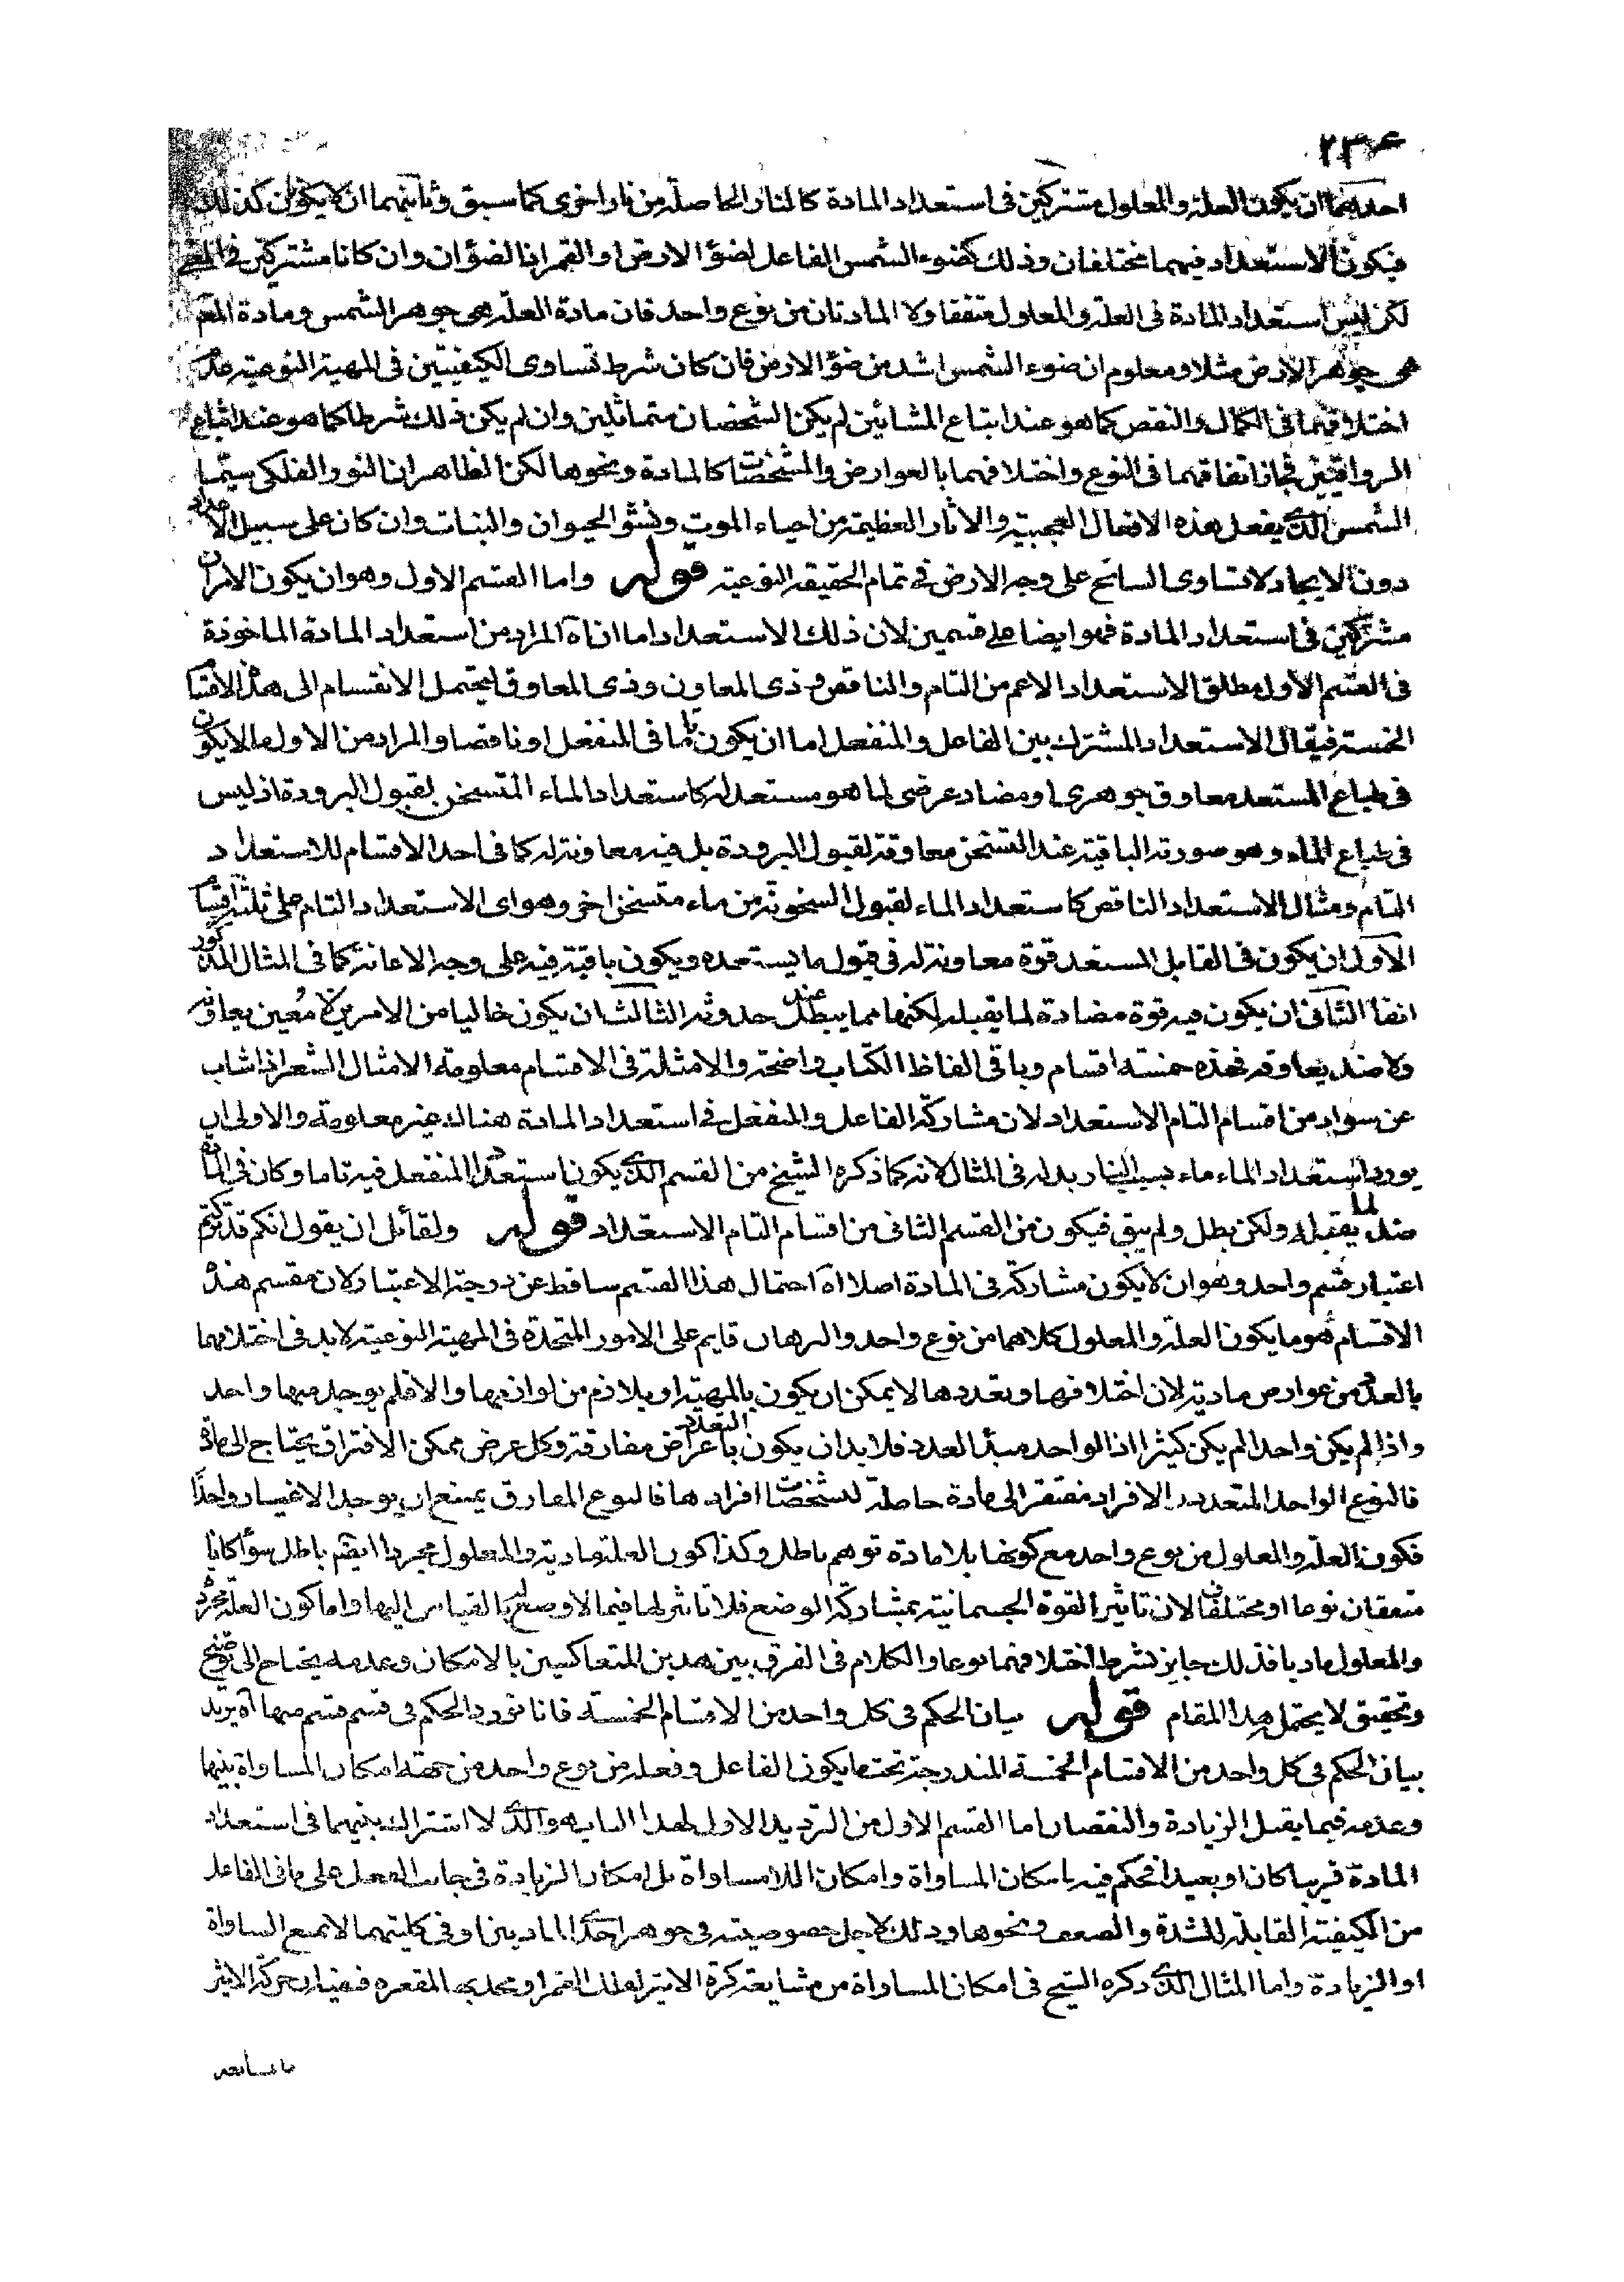 ٢٣٤
احدهما ان يكون العلة والمعلول مشتركين فى استعداد المادة كالنار الحاصلة من نار اخرى كما سبق وثانيهما ان لا يكون كذلك
فيكون الاستعداد فيهما مختلفان وذلك كضوء الشمس الفاعل لضؤ الارض او القمر انا الضؤان وان كانا مشتركين فى
لكن ليس استعداد المادة فى العلة والمعلول متفقا ولا المادتان من نوع واحد فان مادة العلة هى جوهر الشمس ومادة المع
هى جوهر الارض مثلا ومعلوم ان ضوء الشمس اشد من ضؤ الارض فان كان شرط تساوى الكيفيتين فى المهية النوعية عدم
اختلافهما فى الكمال والنقص كما هو عند اتباع المشائين لم يكن الشخصان متماثلين وان لم يكن ذلك شرطا كما هو عند اتباع
الرواقيين فجاز اتفاقهما فى النوع واختلافهما بالعوارض والمشخصات كالمادة ونحوها لكن الظاهر ان النور الفلكى سيما
الشمس الذى يفعل هذه الافعال العجيبة والاثار العظيمة من احياء الموت ونشؤ الحيوان والنبات وان كان على سبيل الاعداد
دون الايجاد لا تساوى السانح على وجه الارض فى تمام الحقيقة النوعية قوله واما القسم الاول وهو ان يكون الامران
مشتركين فى استعداد المادة فهو ايضا على قسمين لان ذلك الاستعداد اما اناه المراد من استعداد المادة الماخوذة
فى القسم الاول مطلق الاستعداد الاعم من التام والناقص وذى المعاون وذى المعاوق ليحتمل الانقسام الى هذه الاقسام
الخمسة فيقال الاستعداد المشترك بين الفاعل والمنفعل اما ان يكون تاما فى المنفعل او ناقصا والمراد من الاول ما لا يكون
فى طباع المستعد معاوق جوهرى او مضاد عرضى لما هو مستعد له كاستعداد الماء المتسخن لقبول البرودة اذ ليس
فى طباع الماء وهو صورته الباقية عند التسخن معاوقة لقبول البرودة بل فيه معاونة له كما فى احد الاقسام للاستعداد
التام ومثال الاستعداد الناقص كاستعداد الماء لقبول السخونة من ماء متسخن اخر وهو اى الاستعداد التام على ثلثة اقسام
الاول ان يكون فى القابل المستعد قوة معاونة له فى قبول ما يستعده ويكون باقية فيه على وجه الاعانة كما فى المثال المذكور
انفا الثانى ان يكون فيه قوة مضادة لما يقبله لكنها مما يبطل عند حدوثه الثالث ان يكون خاليا من الامرين لا معين يعاونه
ولا ضد يعاوقه فهذه خمسة اقسام وباقى الفاظ الكتاب واضحة والامثلة فى الاقسام معلومة الا مثال الشعر اذا شاب
عن سواد من اقسام التام الاستعداد لان مشاركة الفاعل والمنفعل فى استعداد المادة هناك غير معلومة والاولى ان
يورد استعداد الماء ماء بسبب النار بدله فى المثال لانه كما ذكره الشيخ من القسم الذى يكون استعداد المنفعل فيه تاما وكان فى المادة
ضد لما يقبله ولكن يبطل ولم يبق فيكون من القسم الثانى من اقسام التام الاستعداد قوله ولقائل ان يقول انكم قد تركتم
اعتبار قسم واحد وهو ان لا يكون مشاركة فى المادة اصلا اه احتمال هذا القسم ساقط عن درجة الاعتبار لان مقسم هذه
الاقسام هو ما يكون العلة والمعلول كلاهما من نوع واحد والبرهان قايم على الامور المتحدة فى المهية النوعية لا بد فى اختلافهما
بالعدد من عوارض مادية لان اختلافها وتعددها لا يمكن ان يكون بالمهية او بلازم من لوازمها والا فلم يوجد منها واحد
واذا لم يكن واحدا لم يكن كثيرا اذ الواحد مبدأ العدد فلا بد ان يكون التعدد باعراض مفارقة وكل عرض ممكن الافتراق يحتاج الى مادة
فالنوع الواحد المتعدد الافراد مفتقر الى مادة حاملة لمشخصات افرادها فالنوع المفارق يمتنع ان يوجد الا فى واحدا
فكون العلة والمعلول من نوع واحد مع كونهما بلا مادة توهم باطل وكذا كون العلة مادية والمعلول مجردا ايضم باطل سواء كانا
متفقان نوعا او مختلفان لان تاثير القوة الجسمانية بمشاركة الوضع فلا تاثير لها فيما لا وضع له بالقياس اليها واما كون العلة مجردة
والمعلول ماديا فذلك جايز بشرط اختلافهما نوعا والكلام فى الفرق بين هذين المتعاكسين بالامكان وعدمه يحتاج الى توضيح
وتحقيق لا يحتمل هذا المقام قوله بيان الحكم فى كل واحد من الاقسام الخمسة فانا نورد الحكم فى قسم قسم منها اه يريد
بيان الحكم فى كل واحد من الاقسام الخمسة المندرجة تحت ما يكون الفاعل وفعله من نوع واحد من جهة امكان المساواة بينهما
وعدمه فيما يقبل الزيادة والنقصان اما القسم الاول من الترديد الاول لهذا الباب هو الذى لا اشتراك بينهما فى استعداد
المادة قريبا كان او بعيدا فحكم فيه بامكان المساواة وامكان اللامساواة بل امكان الزيادة فى جانب المنفعل على ما فى الفاعل
من الكيفية القابلة للشدة والضعف ونحوها وذلك لاجل خصوصية فى جوهر احد المادتين او فى كليتهما لا يمنع المساواة
او الزيادة واما المثال الذى ذكره الشيخ فى امكان المساواة من مشايعة كرة الاثير لفلك القمر او محدبه المقعره فحركة الاثير